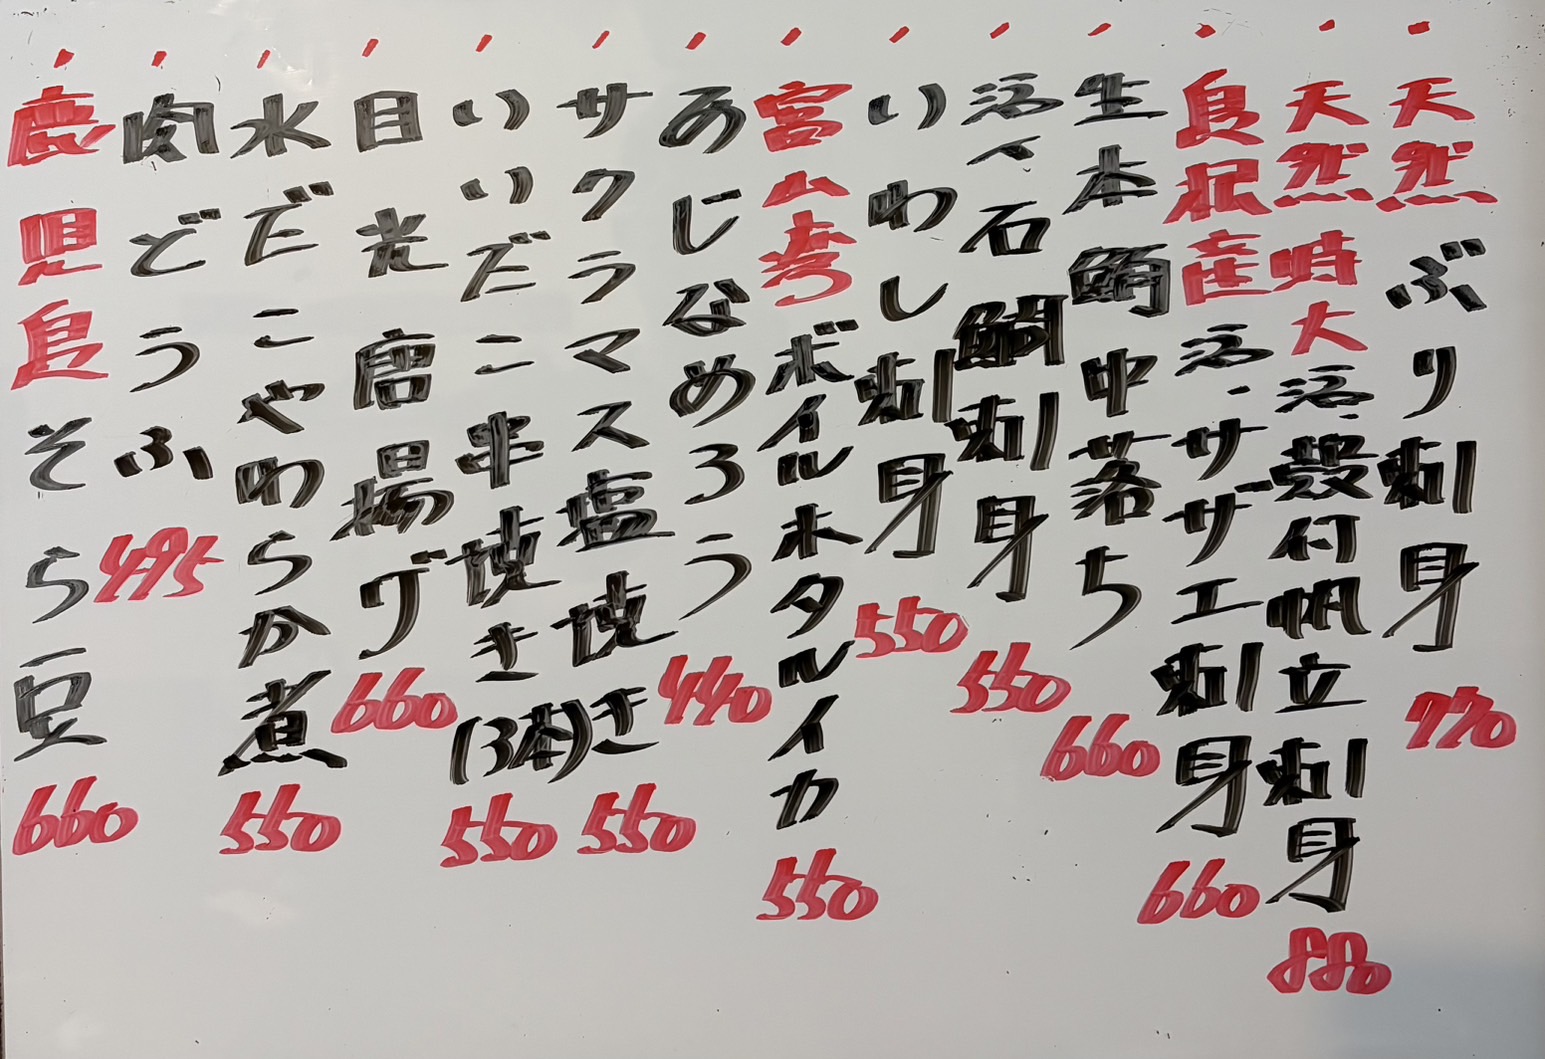 天然ぶり刺身 770
天然特大活殻付帆立刺身 880
島根産活サザエ刺身 660
生本鮪中落ち 660
活〆石鯛刺身 550
いわし刺身 550
富山産ボイルホタルイカ 550
あじなめろう 440
サクラマス塩焼き 550
いいだこ串焼き(3本) 550
目光唐揚げ 660
水だこやわらか煮 550
肉どうふ 495
鹿児島そら豆 660